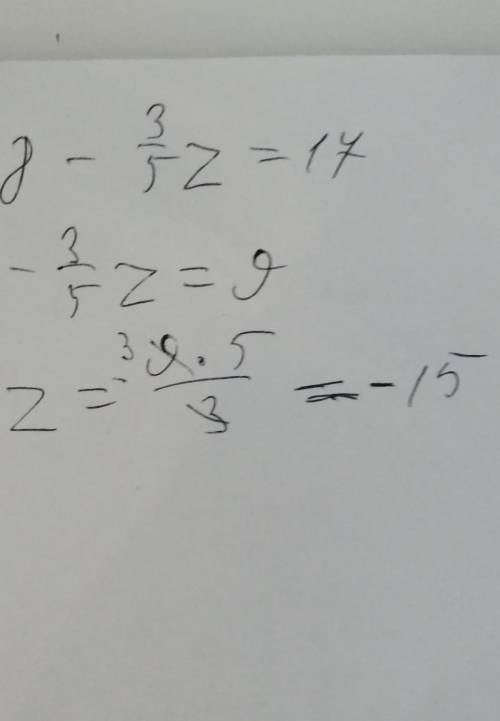 8 - 3/5 z = 17
- 3/5 z = 9
z = - 3 9 · 5 / 3 = - 15